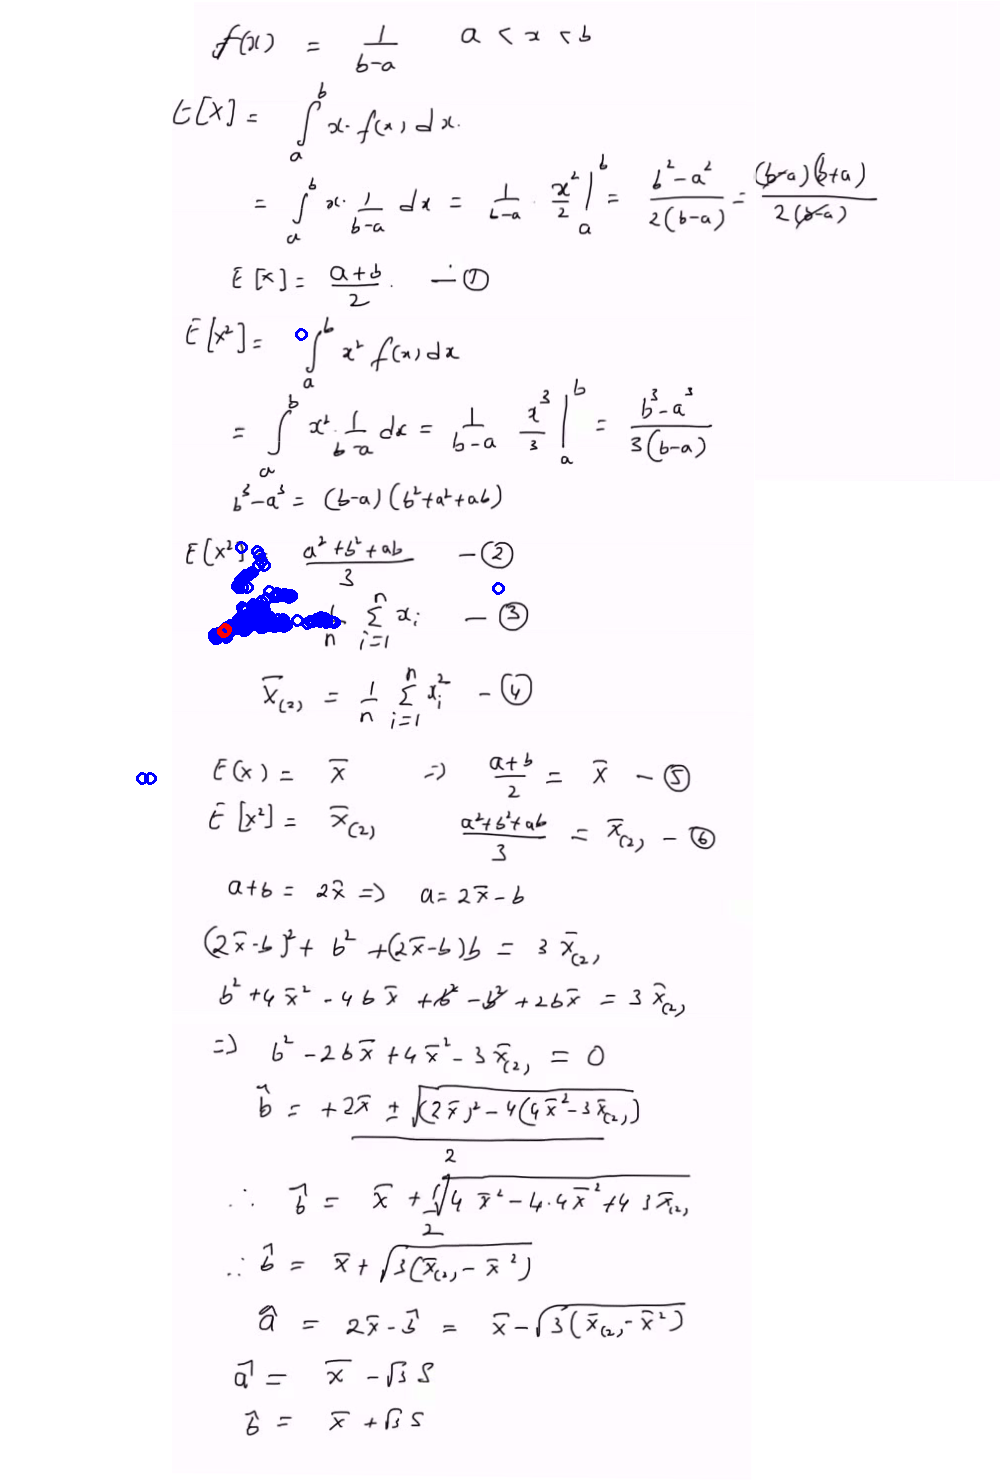 f(x) = 1/(b-a)   a < x < b
E[X] = ∫_a^b x. f(x) dx.
= ∫_a^b x. 1/(b-a) dx = 1/(b-a) . x²/2 |_a^b = (b²-a²)/(2(b-a)) = ((b-a)(b+a))/(2(b-a))
E[x] = (a+b)/2 . — ①
E[x²] = ∫_a^b x² f(x) dx
= ∫_a^b x². 1/(b-a) dx = 1/(b-a) x³/3 |_a^b = (b³-a³)/(3(b-a))
b³-a³ = (b-a)(b²+a²+ab)
E[x²] (a²+b²+ab)/3 — ②
/n Σ_{i=1}^n x_i — ③
X̄_(2) = 1/n Σ_{i=1}^n x_i² — ④
E(x) = x̄ => (a+b)/2 = x̄ — ⑤
E[x²] = x̄_(2)   (a²+b²+ab)/3 = x̄_(2) — ⑥
a+b = 2x̄ => a = 2x̄-b
(2x̄-b)² + b² + (2x̄-b)b = 3 x̄_(2)
b² + 4x̄² - 4bx̄ + b² - b² + 2bx̄ = 3 x̄_(2)
=> b² - 2bx̄ + 4x̄² - 3x̄_(2) = 0
b̂ = (+2x̄ ± √((2x̄)² - 4(4x̄² - 3x̄_(2))))/2
∴ b̂ = x̄ + √(4x̄² - 4.4x̄² + 4 3x̄_(2))/2
∴ b̂ = x̄ + √(3(x̄_(2) - x̄²))
â = 2x̄ - b̂ = x̄ - √(3(x̄_(2) - x̄²))
â = x̄ - √3 S
b̂ = x̄ + √3 S